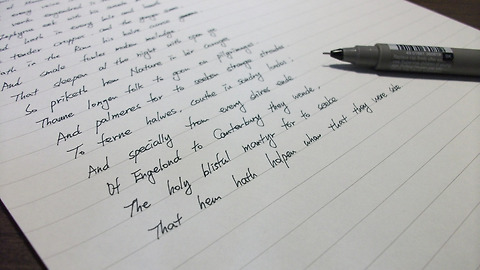 engendred is the
Zephyrus eek with his sweete
hath in every holt and
tendre croppes and the yonge sonne
in the Ram his halve cours
And smale fowles maken melodye
That sleepen al the night with open ye
So priketh hem Nature in hir corages
Thanne longen folk to goon on pilgrimages
And palmeres for to seeken straunge strondes
To ferne halwes, couthe in sondry londes.
And specially from every shires ende
Of Engelond to Canterbury they wende,
The holy blisful martyr for to seeke
That hem hath holpen whan that they were seke